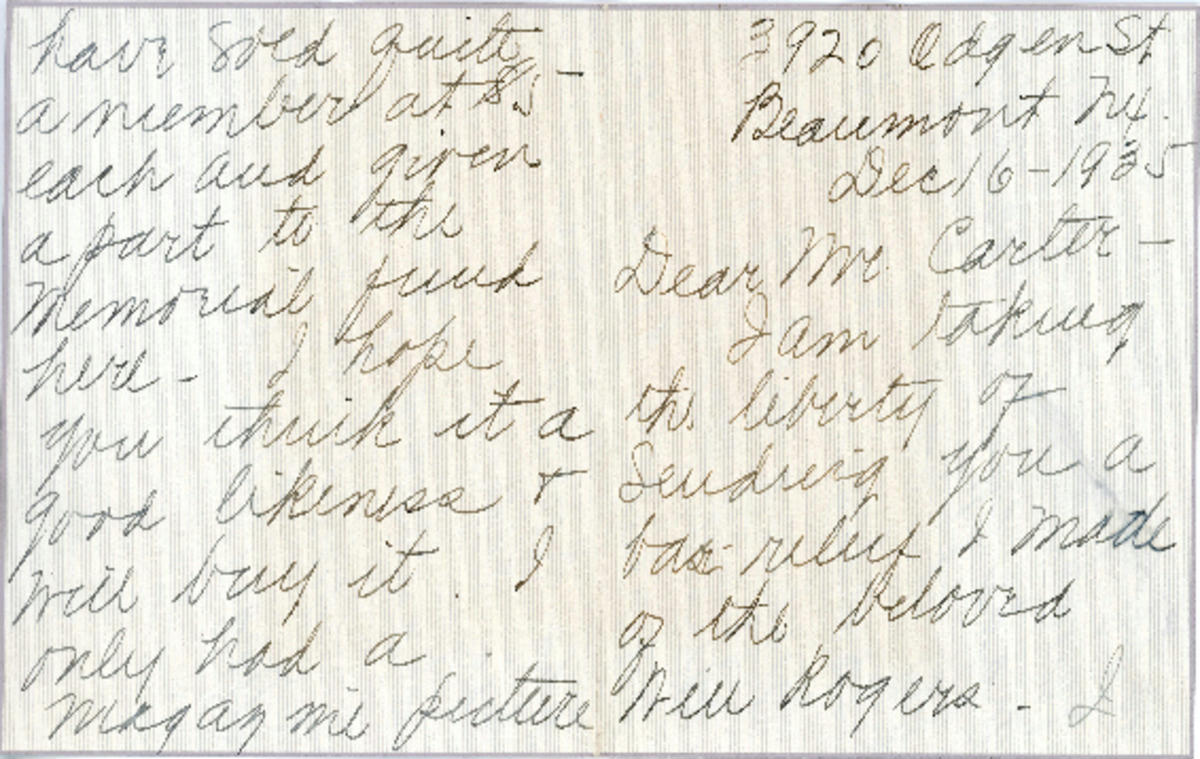 3920 Odgen St
Beaumont Tex.
Dec 16-1935
Dear Mr. Carter-
I am taking
the liberty of
sending you a
bas-relief I made
of the beloved
Will Rogers - I
have sold quite
a number at $5-
each and given
a part to the
Memorial fund
here - I hope
you think it a
good likeness +
will buy it. I
only had a
magazine picture